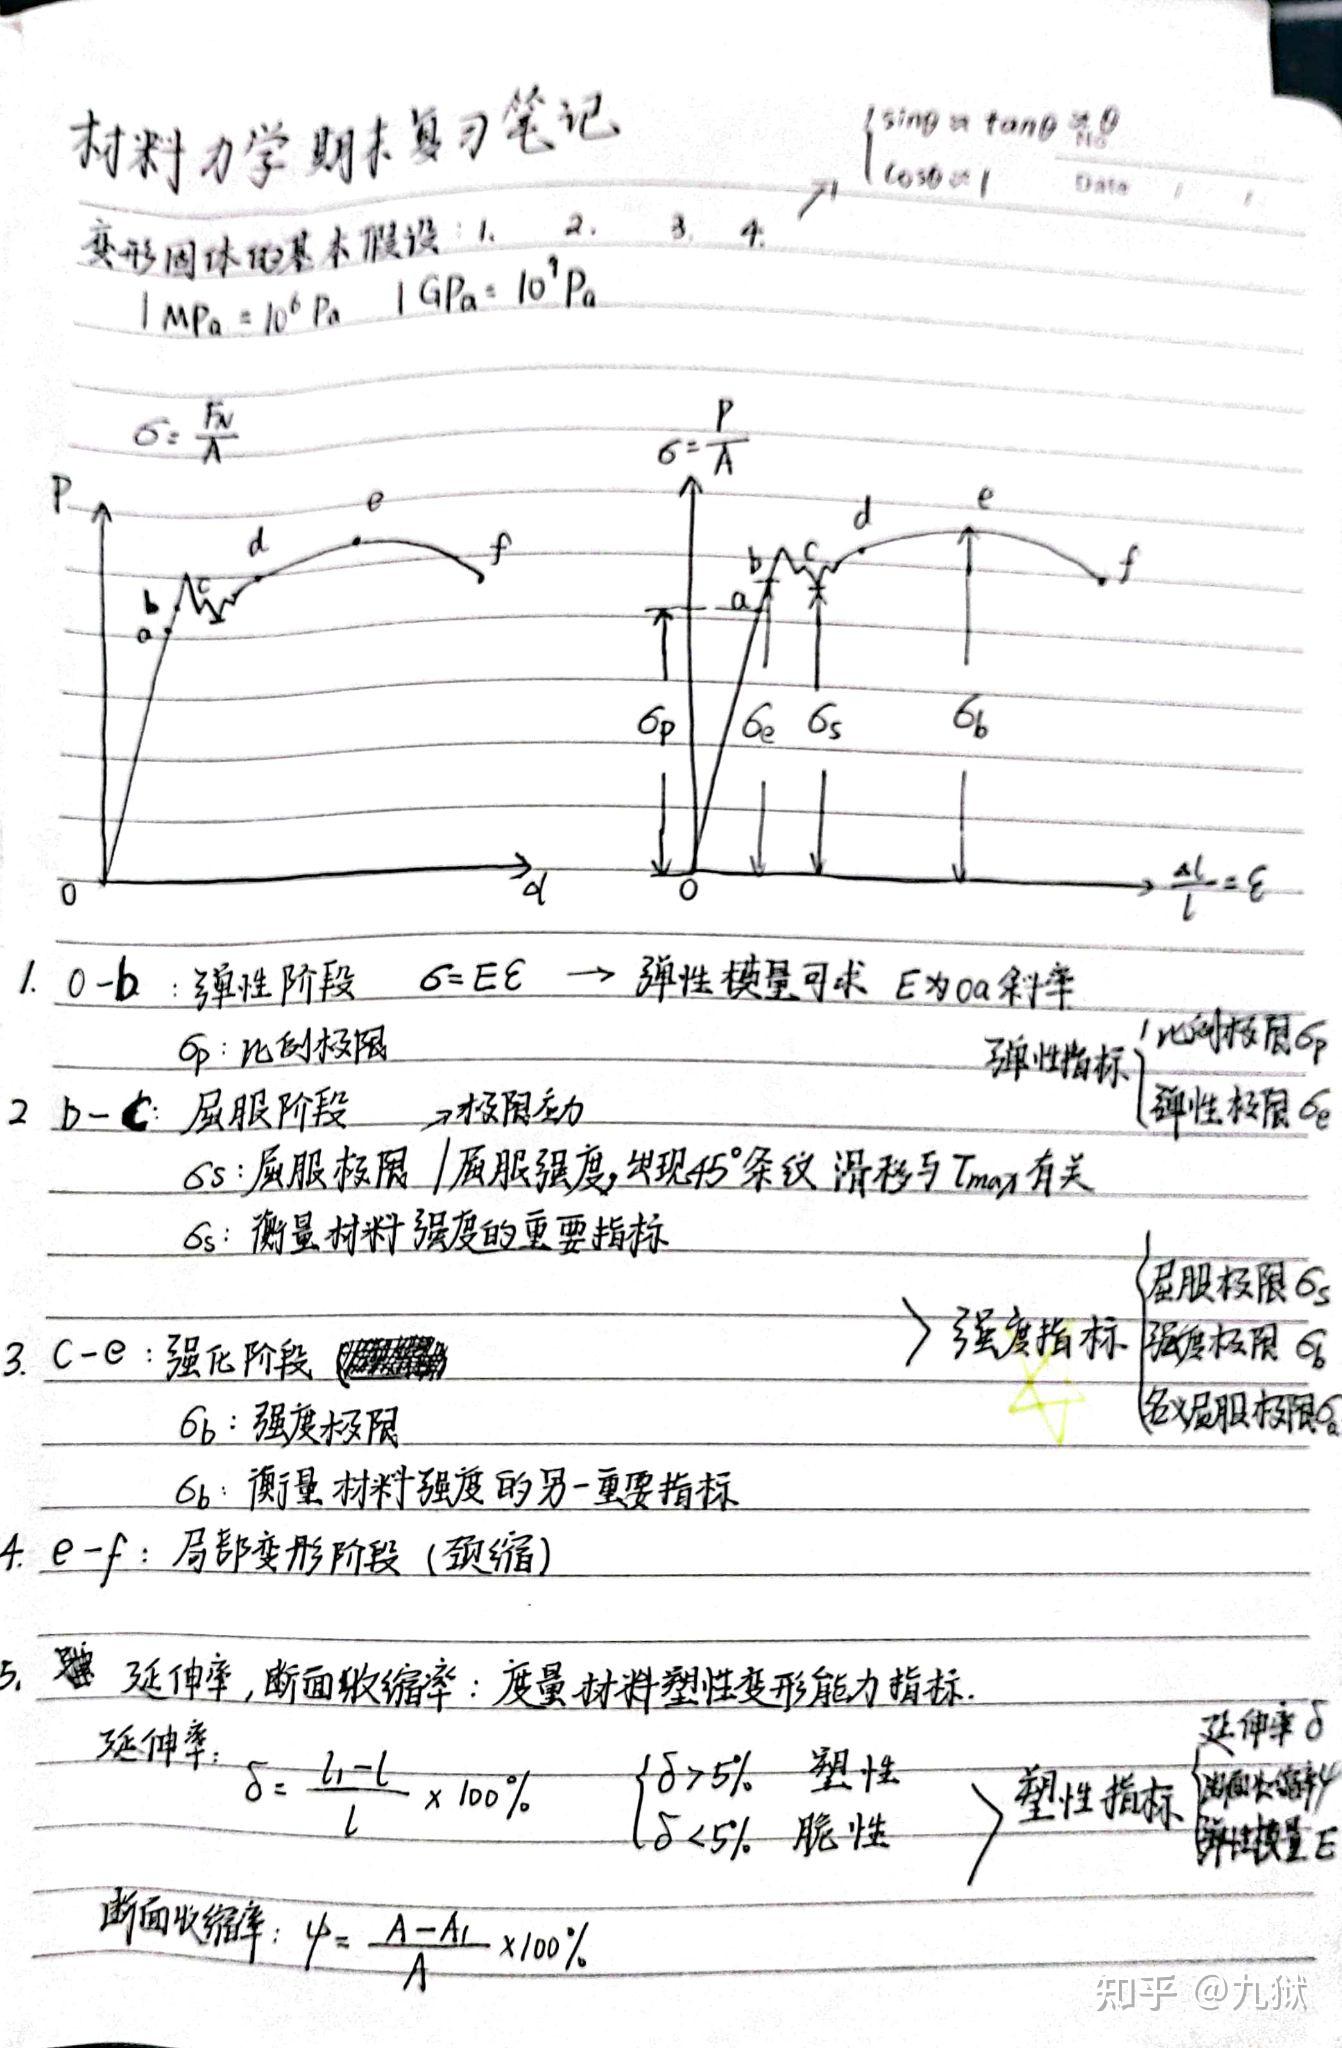 材料力学期末复习笔记
sinθ≈tanθ≈θ
cosθ≈1
No
Date
变形固体的基本假设：1. 2. 3. 4.
1MPa=10⁶Pa 1GPa=10⁹Pa
σ=FN/A
σ=P/A
P
a b c d e f
a b c d e f
σp σe σs σb
0 d
0 Δl/l=ε
1. 0-b：弹性阶段 σ=Eε → 弹性模量可求 E为oa斜率
σp：比例极限
弹性指标 { 比例极限σp
弹性极限σe
2 b-c：屈服阶段 →极限应力
σs：屈服极限/屈服强度，出现45°条纹 滑移与τmax有关
σs：衡量材料强度的重要指标
强度指标 { 屈服极限σs
强度极限σb
名义屈服极限σ
3. c-e：强化阶段
σb：强度极限
σb：衡量材料强度的另一重要指标
4. e-f：局部变形阶段（颈缩）
5. 延伸率，断面收缩率：度量材料塑性变形能力指标.
延伸率：δ=(l₁-l)/l×100% { δ>5% 塑性
δ<5% 脆性
塑性指标 { 延伸率δ
断面收缩率ψ
弹性模量E
断面收缩率：ψ=(A-A₁)/A×100%
知乎 @九狱